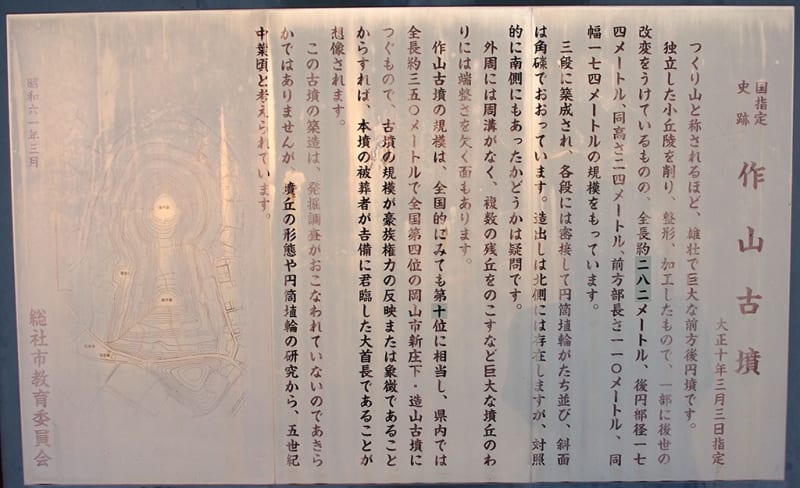 国指定
史跡
作山古墳
大正十年三月三日指定
つくり山と称されるほど、雄壮で巨大な前方後円墳です。
独立した小丘陵を削り、整形、加工したもので、一部に後世の
改変をうけているものの、全長約二八二メートル、後円部径一七
四メートル、同高さ二四メートル、前方部長さ一一〇メートル、同
幅一七四メートルの規模をもっています。
三段に築成され、各段には密接して円筒埴輪がたち並び、斜面
は角礫でおおっています。造出しは北側には存在しますが、対照
的に南側にもあったかどうかは疑問です。
外周には周溝がなく、複数の残丘をのこすなど巨大な墳丘のわ
りには端整さを欠く面もあります。
作山古墳の規模は、全国的にみても第十位に相当し、県内では
全長約三五〇メートルで全国第四位の岡山市新庄下・造山古墳に
つぐもので、古墳の規模が豪族権力の反映または象徴であること
からすれば、本墳の被葬者が吉備に君臨した大首長であることが
想像されます。
この古墳の築造は、発掘調査がおこなわれていないのであきら
かではありませんが、墳丘の形態や円筒埴輪の研究から、五世紀
中葉頃と考えられています。
昭和六一年三月
総社市教育委員会